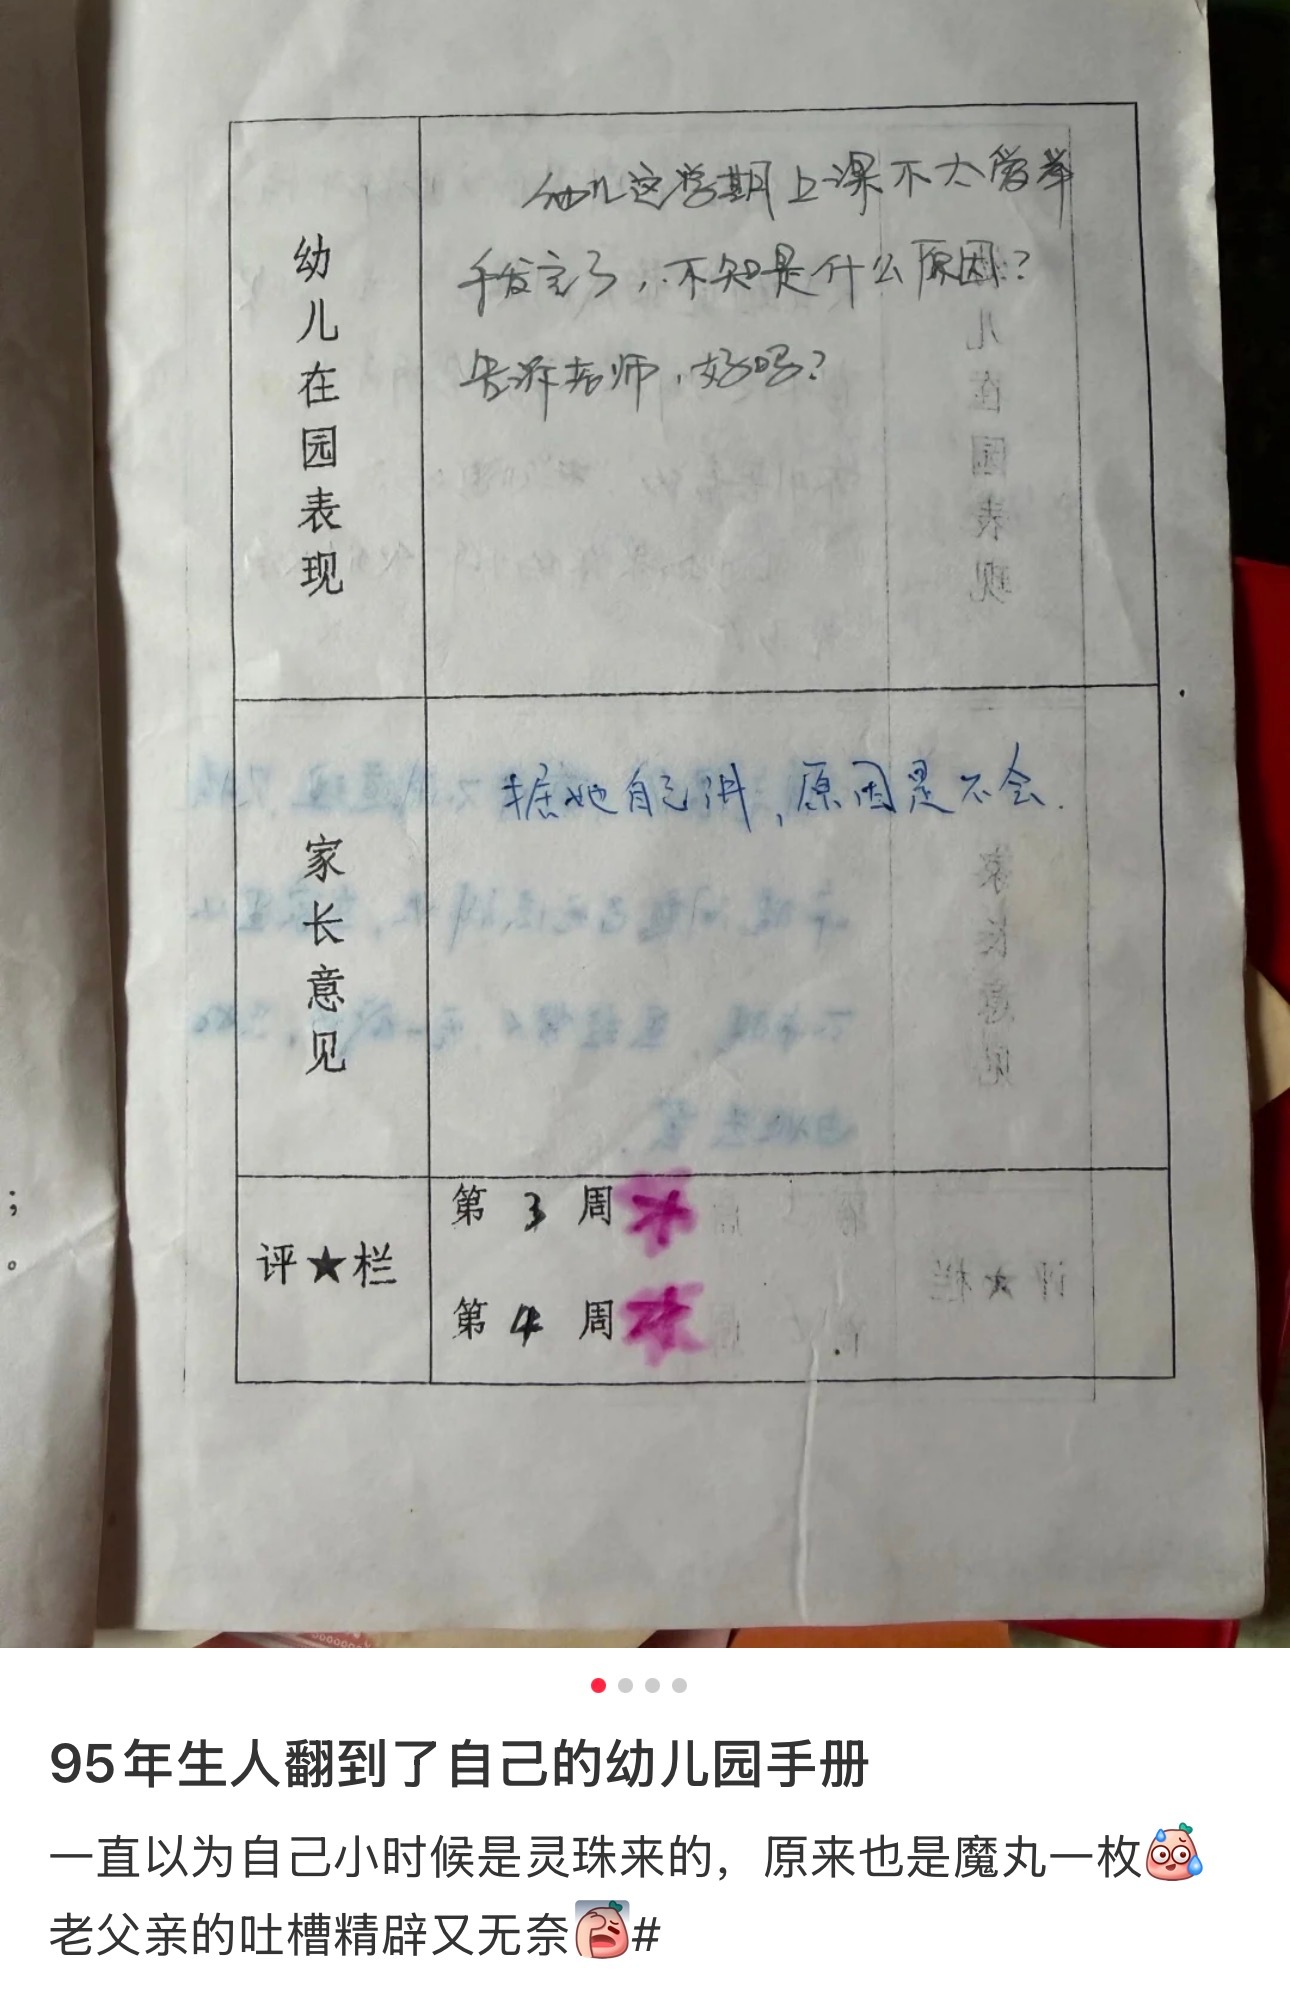 幼儿在园表现
幼儿这学期上课不太爱举
手发言了，不知是什么原因？
告诉老师，好吗？
家长意见
据她自己讲，原因是不会.
评★栏
第 3 周
第 4 周
；
。
95年生人翻到了自己的幼儿园手册
一直以为自己小时候是灵珠来的，原来也是魔丸一枚
老父亲的吐槽精辟又无奈#